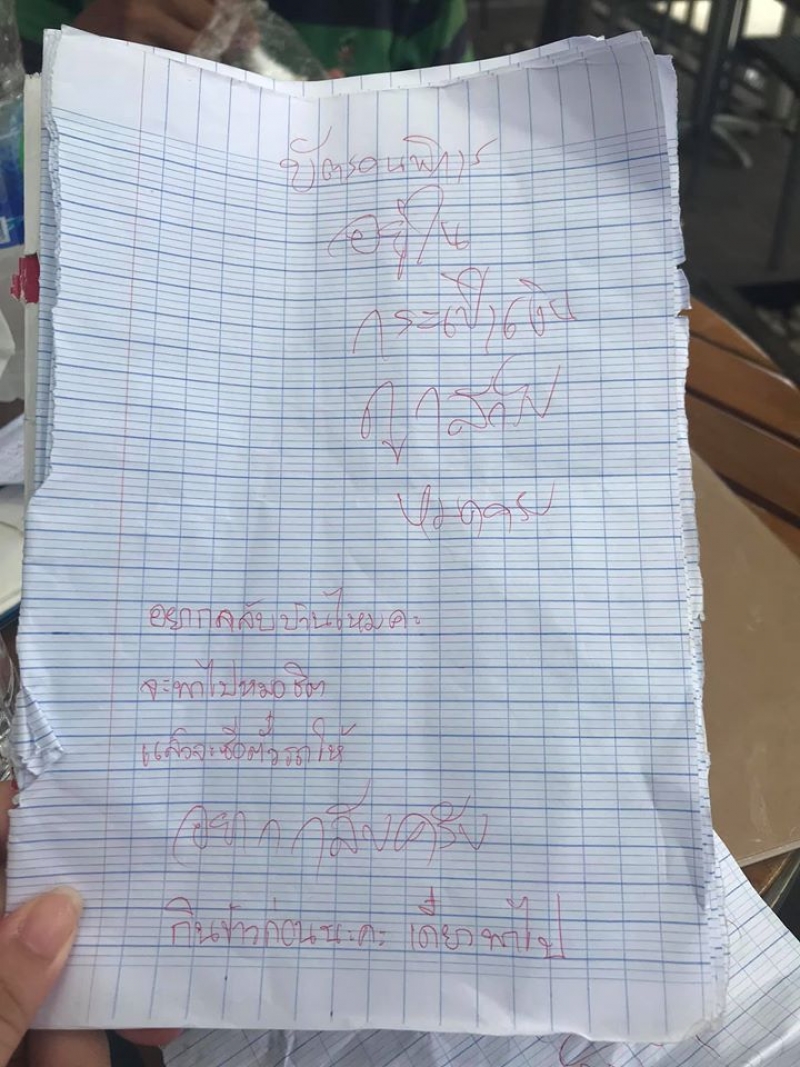 บัตรคนพิการ
อยู่ใน
กระเป๋าเงิน
ครับ
อยากกลับบ้านไหมคะ
จะพาไปหมอชิต
แล้วจะซื้อตั๋วรถให้
อยากกลับครับ
กินข้าวก่อนนะคะ เดี๋ยวพาไป